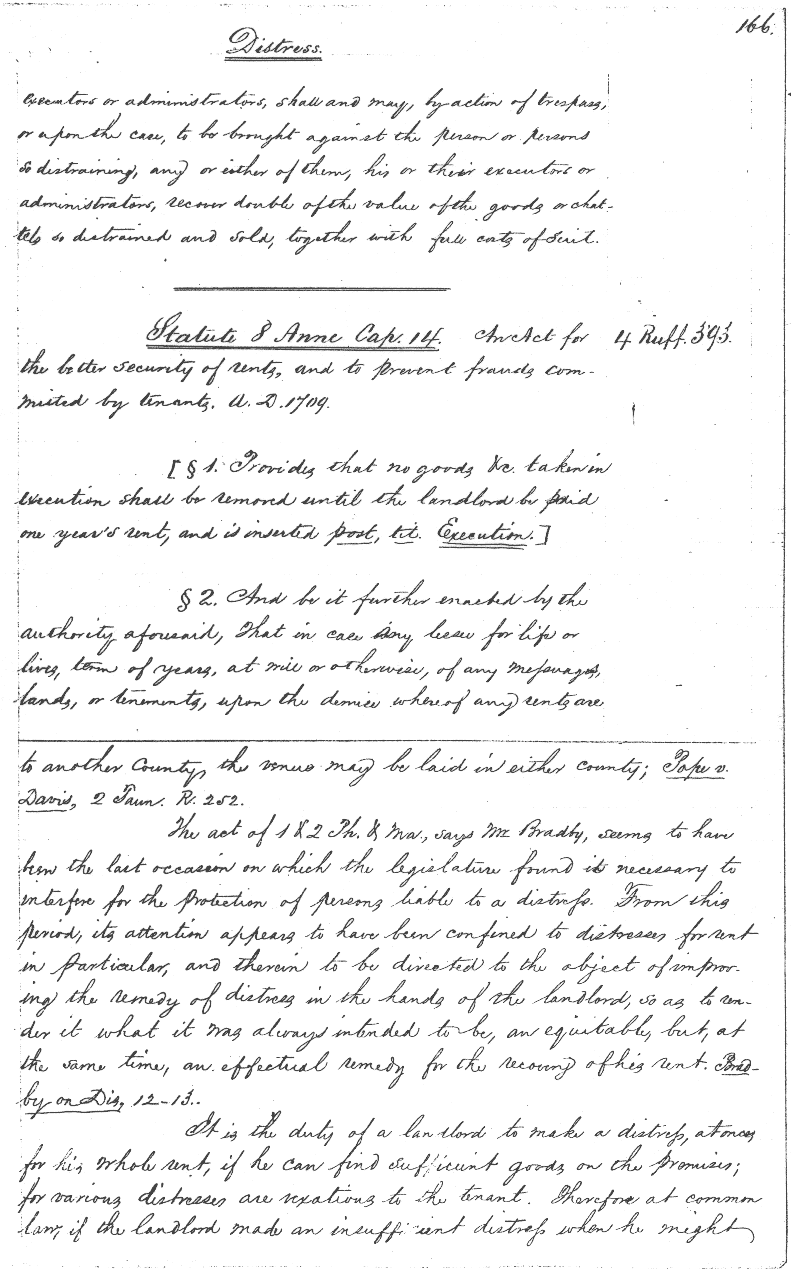 166.
Distress.
executors or administrators, shall and may, by action of trespass,
or upon the case, to be brought against the person or persons
so distraining, any or either of them, his or their executors or
administrators, recover double of the value of the goods or chat-
tels so distrained and sold, together with full costs of suit.
Statute 8 Anne Cap. 14. An Act for 4 Ruff. 393.
the better security of rents, and to prevent frauds com-
mitted by tenants. A.D. 1709.
[§ 1. Provides that no goods &c. taken in
execution shall be removed until the landlord be paid
one year's rent, and is inserted post, tit. Execution.]
§ 2. And be it further enacted by the
authority aforesaid, That in case any lessee for life or
lives, term of years, at will or otherwise, of any messuages,
lands, or tenements, upon the demise whereof any rents are
to another County, the venue may be laid in either county; Pope v.
Davis, 2 Taun. R. 252.
The act of 1 & 2 Ph. & Ma., says Mr Bradby, seems to have
been the last occasion on which the legislature found it necessary to
interfere for the protection of persons liable to a distress. From this
period, its attention appears to have been confined to distresses for rent
in particular, and therein to be directed to the object of improv-
ing the remedy of distress in the hands of the landlord, so as to ren-
der it what it was always intended to be, an equitable, but, at
the same time, an effectual remedy for the recovery of his rent. Brad-
by on Dis, 12-13.
It is the duty of a landlord to make a distress, at once
for his whole rent, if he can find sufficient goods on the premises;
for various distresses are vexatious to the tenant. Therefore at common
law, if the landlord made an insufficient distress when he might